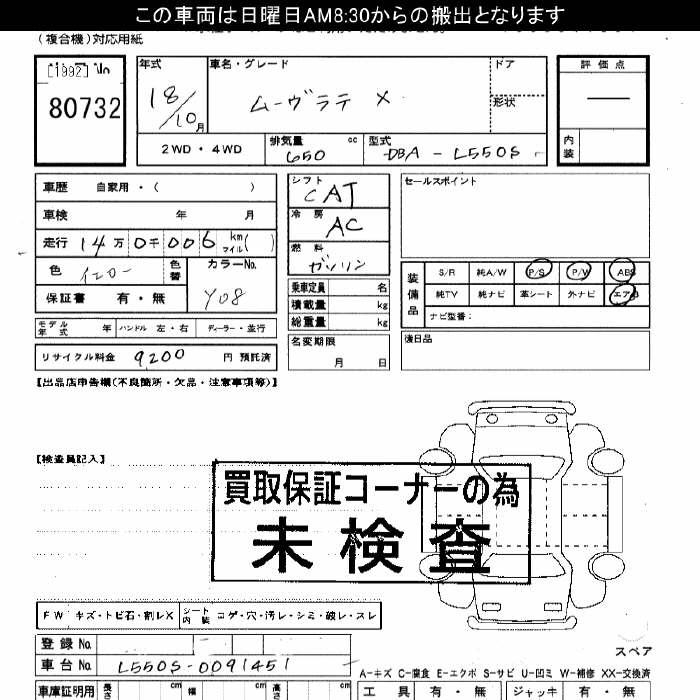 この車両は日曜日AM8:30からの搬出となります
(複合機)対応用紙
[1992] No
80732
年式
18/10月
車名・グレード
ムーヴラテ X
ドア
形状
評価点
—
内装
2WD・4WD
排気量 cc
650
型式
DBA-L550S
車歴 自家用・( )
車検 年 月
走行 14万0千006 km マイル( )
色 イエロー 色替
カラーNo.
Y08
保証書 有・無
モデル年式 年 ハンドル 左・右 ディーラー・並行
リサイクル料金 9200 円 預託済
シフト
CAT
冷房
AC
燃料
ガソリン
乗車定員 名
積載量 kg
総重量 kg
名変期限
月 日
セールスポイント
装備品
S/R 純A/W P/S P/W ABS
純TV 純ナビ 革シート 外ナビ エアB
ナビ型番:
後日品
【出品店申告欄(不良箇所・欠品・注意事項等)】
【検査員記入】
買取保証コーナーの為
未検査
FW キズ・トビ石・割レX シート内装 コゲ・穴・汚レ・シミ・破レ・スレ
登録No.
車台No. L550S-0091451
スペア
A-キズ C-腐食 E-エクボ S-サビ U-凹ミ W-補修 XX-交換済
車庫証明用 長さ cm 幅 cm 高さ cm
工具 有・無 ジャッキ 有・無